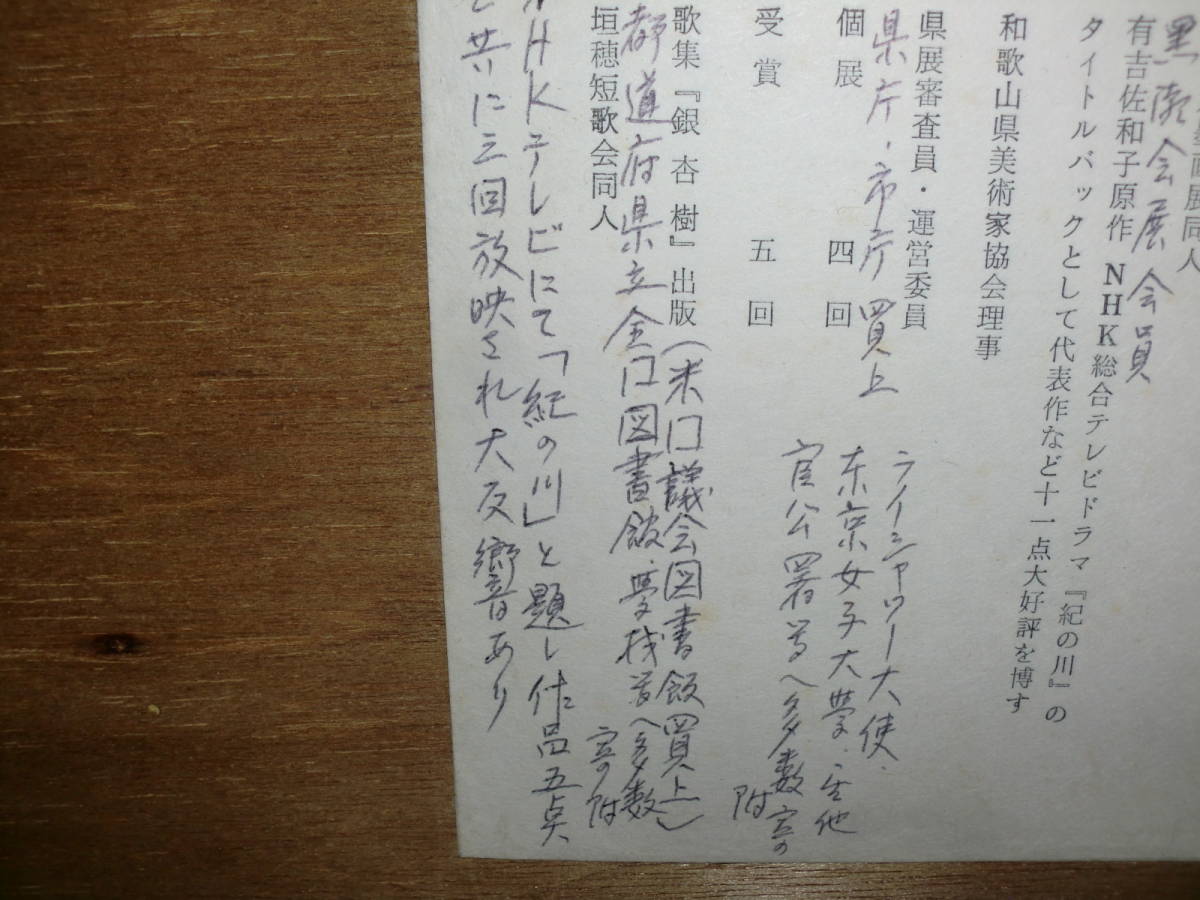 画展同人
黒潮会展会員
有吉佐和子原作 NHK総合テレビドラマ『紀の川』の
タイトルバックとして代表作など十一点大好評を博す
和歌山県美術家協会理事
県展審査員・運営委員
県庁・市庁買上
ライシャワー大使・
個展 四回
東京女子大学・其他
官公署等へ多数寄附
受賞 五回
歌集『銀杏樹』出版(米国議会図書館買上)
都道府県立全国図書館・学校等へ多数寄附
垣穂短歌会同人
HKテレビにて「紀の川」と題し作品五点
と共に三回放映され大反響あり